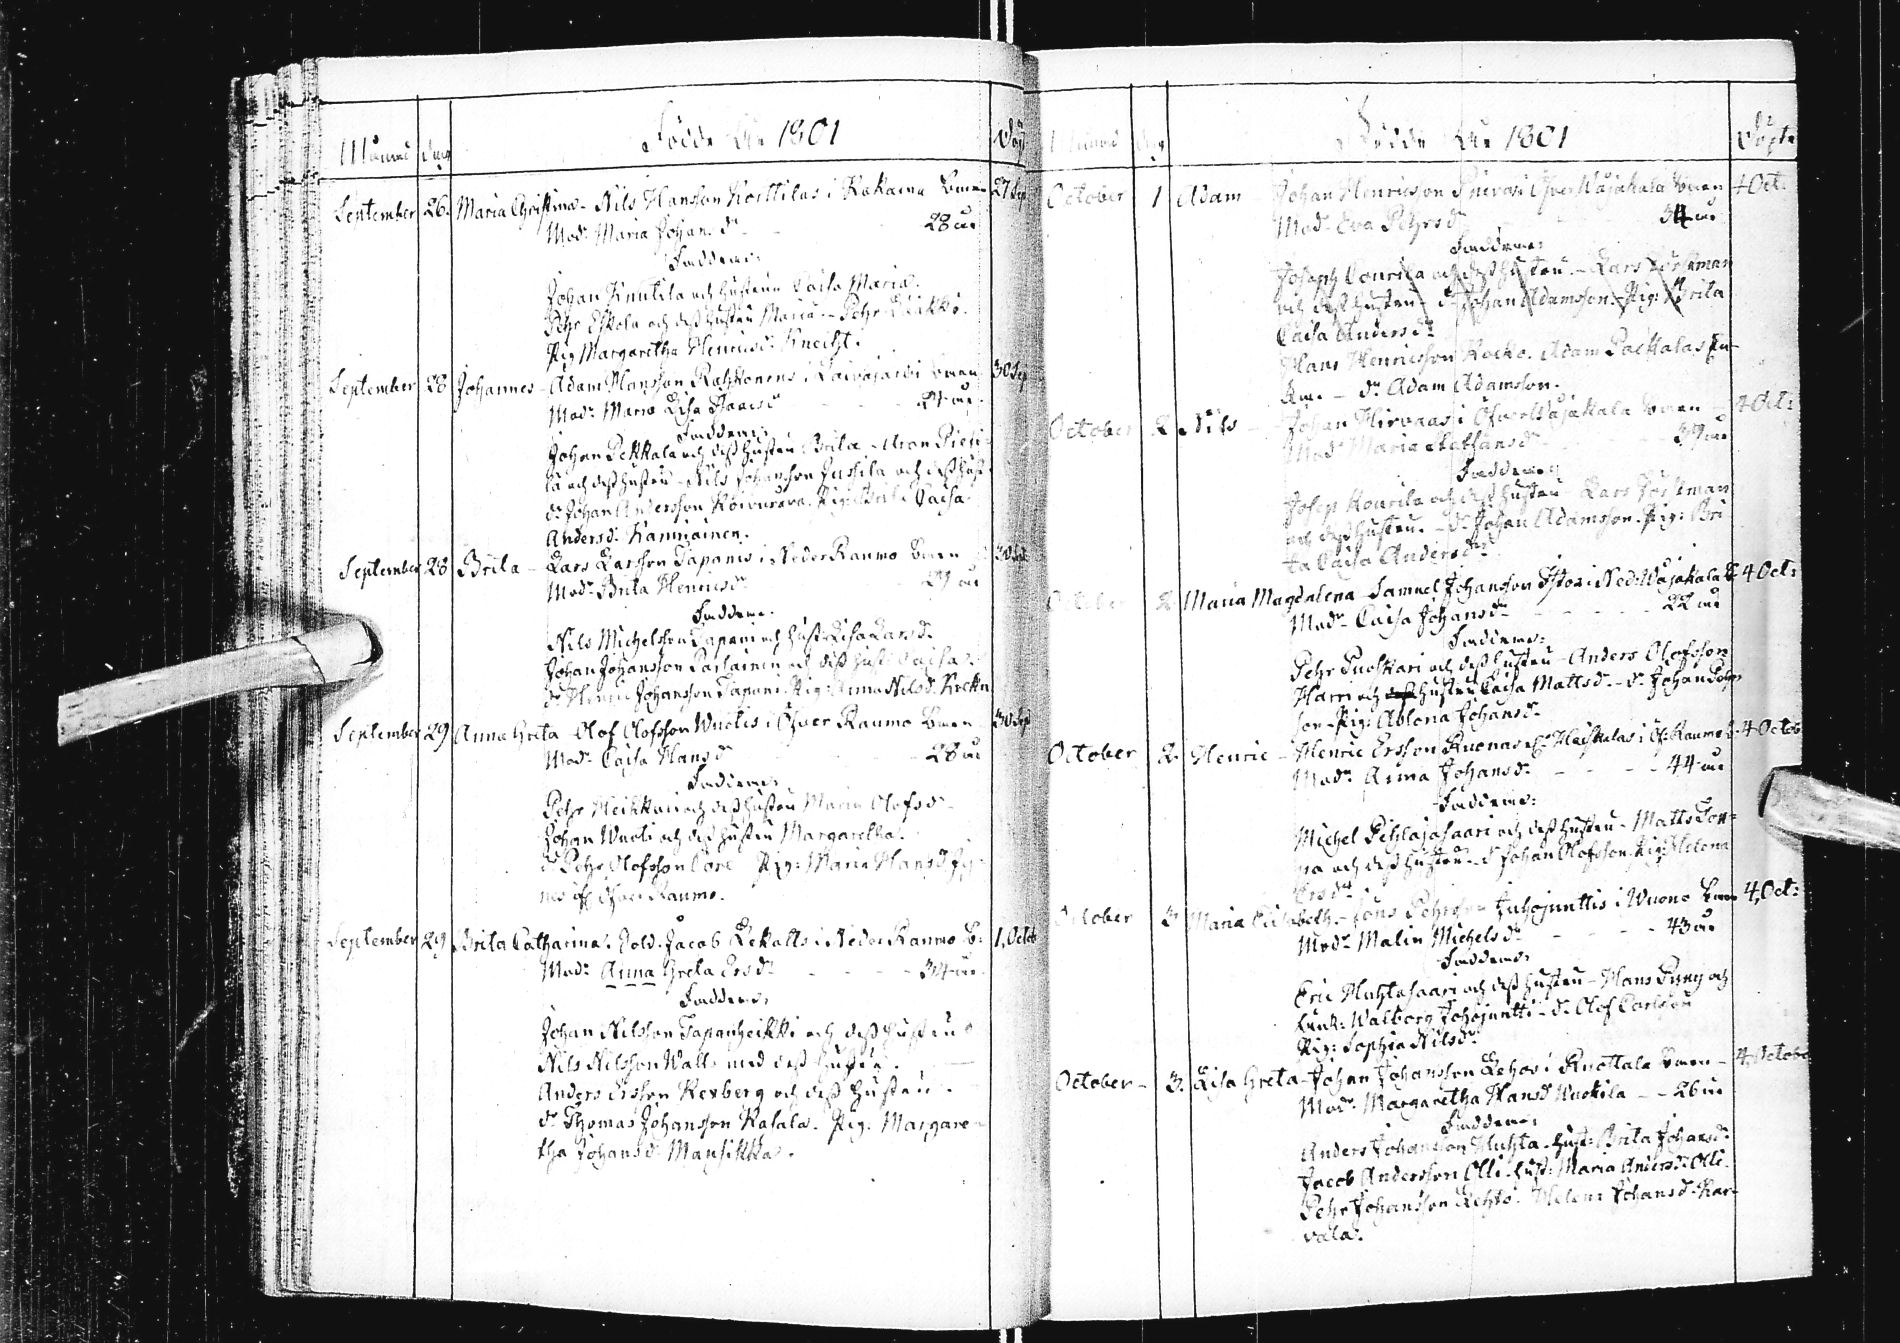 Månad Dag Födde År 1801 Döpt
September 26. Maria Christina - Nils Hansson Korttilas i Kakama Byen 27 Sep
Mod: Maria Johansd: - - 28 år
Faddrar:
Johan Knutila och hustrun Caisa Maria.
Pehr Eskola och dess hustru Maria - Pehr
Pig Margaretha Henricsd: Knecht.
September 28 Johannes - Adam Hansson Rahkonens i Laivajärvi Byen 30 Sep
Mod: Maria Lisa Isaacsd - - 24 år
Faddrar:
Johan Pekkala och dess hustru Brita - Aron
la och dess hustru - Nils Johansson Jussila och dess hust
dr: Johan Andersson Koivurova. Pig: Caisa
Andersd: Kanniainen.
September 28 Brita - Lars Larsson Tapanis i Neder Raumo Byen 30 Sept
Mod: Brita Henricsd: 29 år
Faddrar:
Nils Michelsson Tapani och hust: Lisa Larsd:
Johan Johansson och dess hust: Caisa
dr: Henric Johansson Tapani. Pig: Anna Nilsd:
September 29 Anna Greta - Olof Olofsson Wuolis i Öfver Raumo Byen 30 Sep
Mod: Caisa Hansd - - 28 år
Faddrar:
Pehr Heikkari och dess hustru Maria Olofsd -
Johan Wuoli och dess hustru Margaretha.
dr: Pehr Olofsson Core Pig: Maria Hansd
Öfver Raumo.
September 29 Brita Catharina. Sold. Jacob Lekatts i Neder Raumo B: 1 Octob
Mod: Anna Greta Ersd: - - - 34 år
Faddrar:
Johan Nilsson Tapanheikki och dess hustru
Nils Nilsson Walle med dess hustru.
Anders Ersson Rexberg och dess hustru -
dr: Thomas Johansson Kalala. Pig: Margare-
tha Johansd: Mansikka.
Månad Dag Födde År 1801 Döpte
October 1 Adam Johan Henricsson i Öfver Wojakala Byen 4 Oct:
Mod: Eva Pehrsd 34 år
Faddrar:
Joseph Courila och dess hustru - Lars Forsman
och dess hustru - dr: Johan Adamsson. Pig: Brita
Caisa Andersdr
Hans Henricsson Kocko. Adam Packalas
- dr: Adam Adamsson.
October 2 Nils - Johan Hirvaas i Öfver Wojakala Byen 4 Oct:
Mod: Maria Staffansd: 39 år
Faddrar:
Josep Kourila och dess hustru Lars Forsman
och dess hustru. - dr: Johan Adamsson. Pig: Bri
ta Caisa Andersdr
October 2 Maria Magdalena - Samuel Johansson i Ned: Wojakala B: 4 Oct:
Mod: Caisa Johansd: - - - 22 år
Faddrar:
Pehr Puoskari och dess hustru - Anders Olofsson
Harri och hustru Caisa Mattsd: - dr: Johan Pehrs
son - Pig: Ablona Johansd:
October 2 Henric - Henric Ersson Ruonas i Öf: Raumo B. 4 Octob
Mod: Anna Johansd: - - - 44 år
Faddrar:
Michel Pihlajasaari och dess hustru - Matts
na och dess hustru - dr: Johan Olofsson. Pig: Helena
Ersdr
October 3 Maria Elisabeth - Jöns Pehrsson Juhojunttis i Wuono Byen 4 Oct:
Mod: Malin Michelsdr - - - 43 år
Faddrar:
Eric Huhtasaari och dess hustru - Hans och
Walborg Johojuntti - dr: Olof Carlsson
Pig: Sophia Nilsdr
October - 3. Lisa Greta - Johan Johansson Lehos i Knottala Byen - 4 October
Mod: Margaretha Hansd Wuokila - - 26 år
Faddrar:
Anders Johansson Huhta - hust: Brita Johansd:
Jacob Andersson Olli. hust: Maria Andersd: Olli.
Pehr Johansson Lehto. Helena Johansd: Kar-
vala.